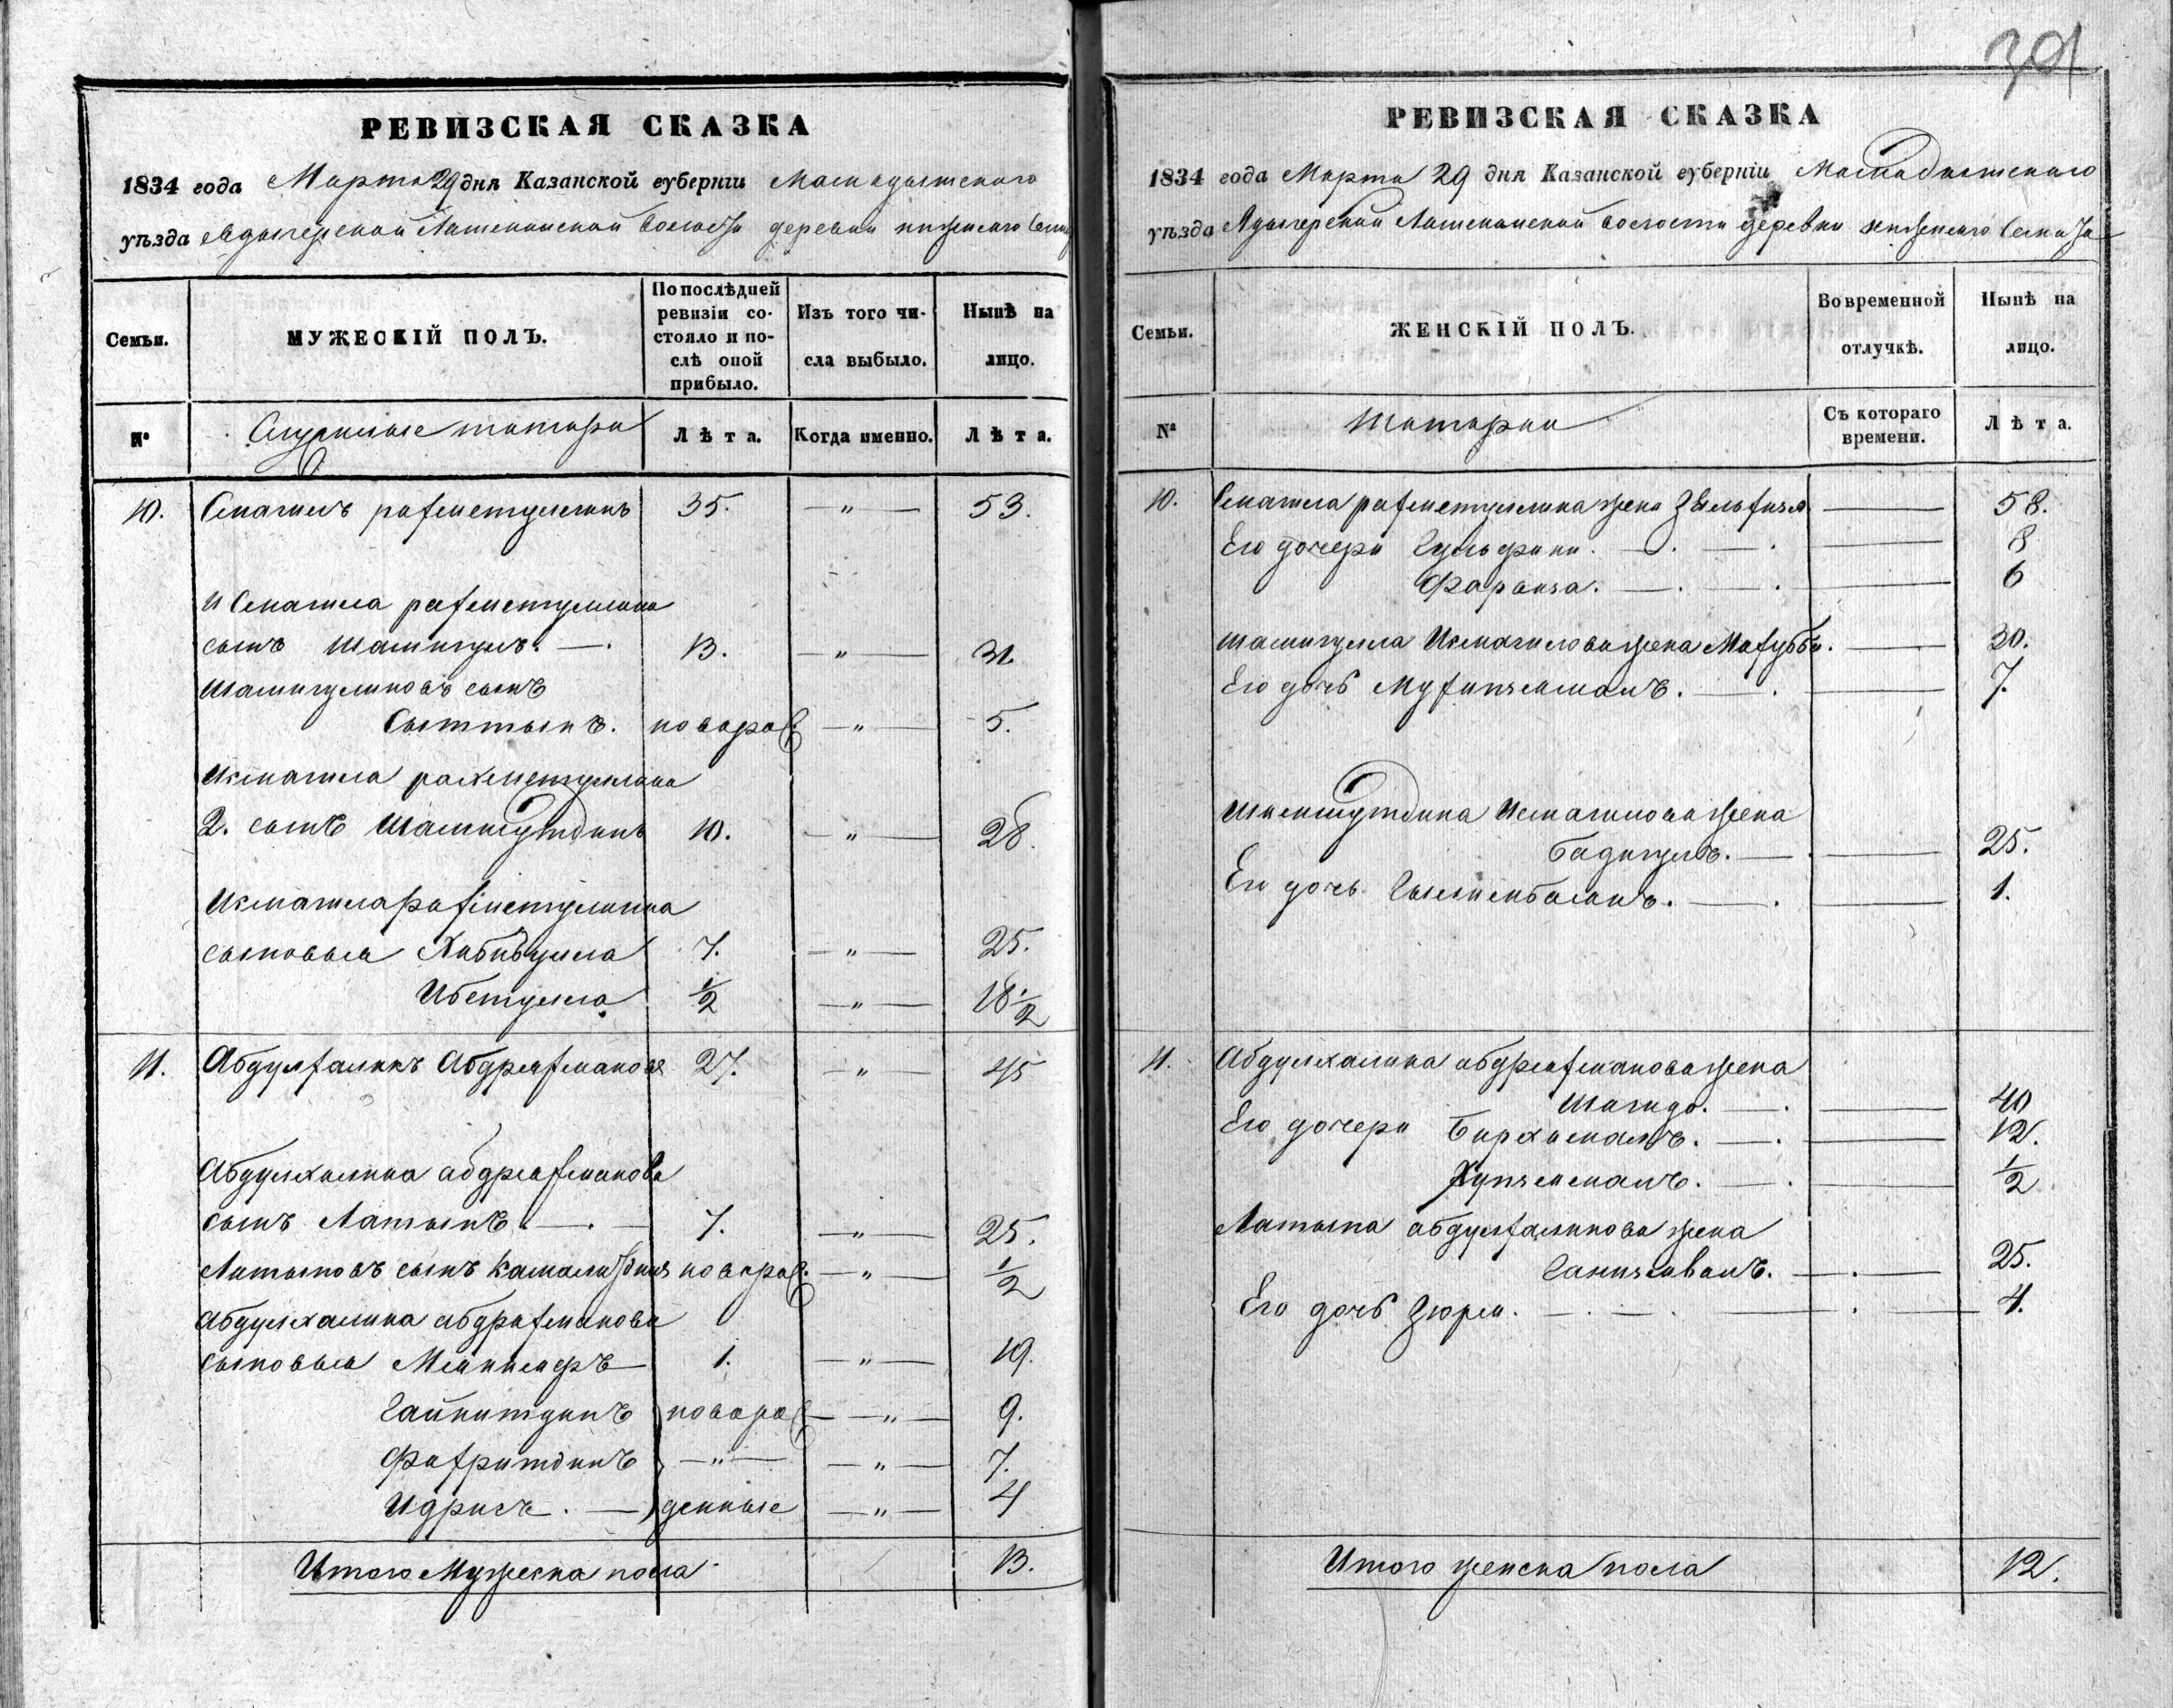 РЕВИЗСКАЯ СКАЗКА
1834 года Марта 29 дня Казанской губерніи Мамадышскаго
уѣзда волости деревни нижняго
Семьи.
МУЖЕСКІЙ ПОЛЪ.
По послѣдней ревизіи состояло и послѣ оной прибыло.
Изъ того числа выбыло.
Нынѣ на лицо.
№
Служилые татары
Лѣта.
Когда именно.
Лѣта.
10. Смагилъ рахметуллинъ 35. — " — 53.
Исмагила рахметуллина
сынъ Шамигулъ. — . 13. — " — 31.
Шамигуловъ сынъ
Сыттыкъ. новорож. — " — 5.
Исмагила рахметуллина
2. сынъ Шамшутдинъ 10. — " — 28.
Исмагила рахметуллина
сыновья Хабибулла 7. — " — 25.
Ибетулла ½ — " — 18 ½
11. Абдулхаликъ Абдрахмановъ 27. — " — 45
Абдулхалика абдрахманова
сынъ Латыпъ. — . — 7. — " — 25.
Латыповъ сынъ Камалитдинъ новорож. — " — ½
Абдулхалика абдрахманова
сыновья 1. — " — 19.
Гайнитдинъ новорож — " — 9.
Фахритдинъ — " — — " — 7.
Идрисъ. — денные — " — 4
Итого Мужеска пола 13.
РЕВИЗСКАЯ СКАЗКА
1834 года Марта 29 дня Казанской губерніи Мамадышскаго
уѣзда волости деревни нижняго
Семьи.
ЖЕНСКІЙ ПОЛЪ.
Во временной отлучкѣ.
Нынѣ на лицо.
№
татарки
Съ котораго времени.
Лѣта.
10. Смагила рахметуллина жена — 58.
Его дочери — . — . — 8
— . — . — 6
Шамигулла Исмагилова жена Махубби. — 30.
Его дочь — . — 7.
Шамшутдина Исмагилова жена
Бадигулъ. — . — 25.
Его дочь — . — 1.
11. Абдулхалика абдрахманова жена
Шагида. — . — 40
Его дочери — . — 12.
— . — ½
Латыпа абдулхаликова жена
— . — 25.
Его дочь Зюрем. — . — . — . — 4.
Итого женска пола 12.